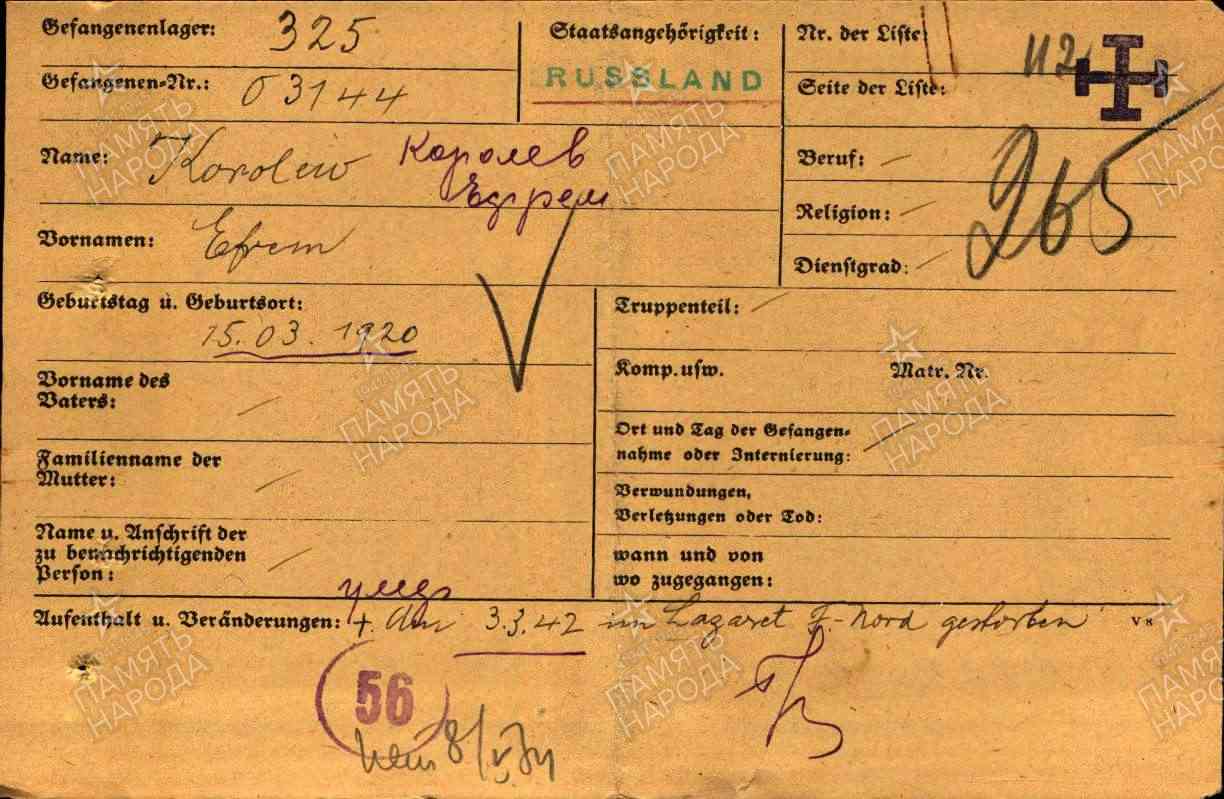 Gefangenenlager: 325
Gefangenen-Nr.: 03144
Staatsangehörigkeit:
RUSSLAND
Nr. der Liste:
112
Seite der Liste:
Name: Korolew Королев
Ефрем
Vornamen: Efrem
Beruf: —
Religion: —
Dienstgrad: —
265
Geburtstag u. Geburtsort:
15.03.1920
Vorname des
Vaters: —
Familienname der
Mutter: —
Name u. Anschrift der
zu benachrichtigenden
Person: —
Truppenteil: —
Komp. usw. Matr. Nr.
Ort und Tag der Gefangen-
nahme oder Internierung: —
Verwundungen,
Verletzungen oder Tod:
wann und von
wo zugegangen:
умер
Aufenthalt u. Veränderungen: †. Am 3.3.42 im Lazaret F.-Nord gestorben V 8
56
ПАМЯТЬ
НАРОДА
ПАМЯТЬ
НАРОДА
ПАМЯТЬ
НАРОДА
ПАМЯТЬ
НАРОДА
ПАМЯТЬ
НАРОДА
ПАМЯТЬ
НАРОДА
ПАМЯТЬ
НАРОДА
ПАМЯТЬ
НАРОДА